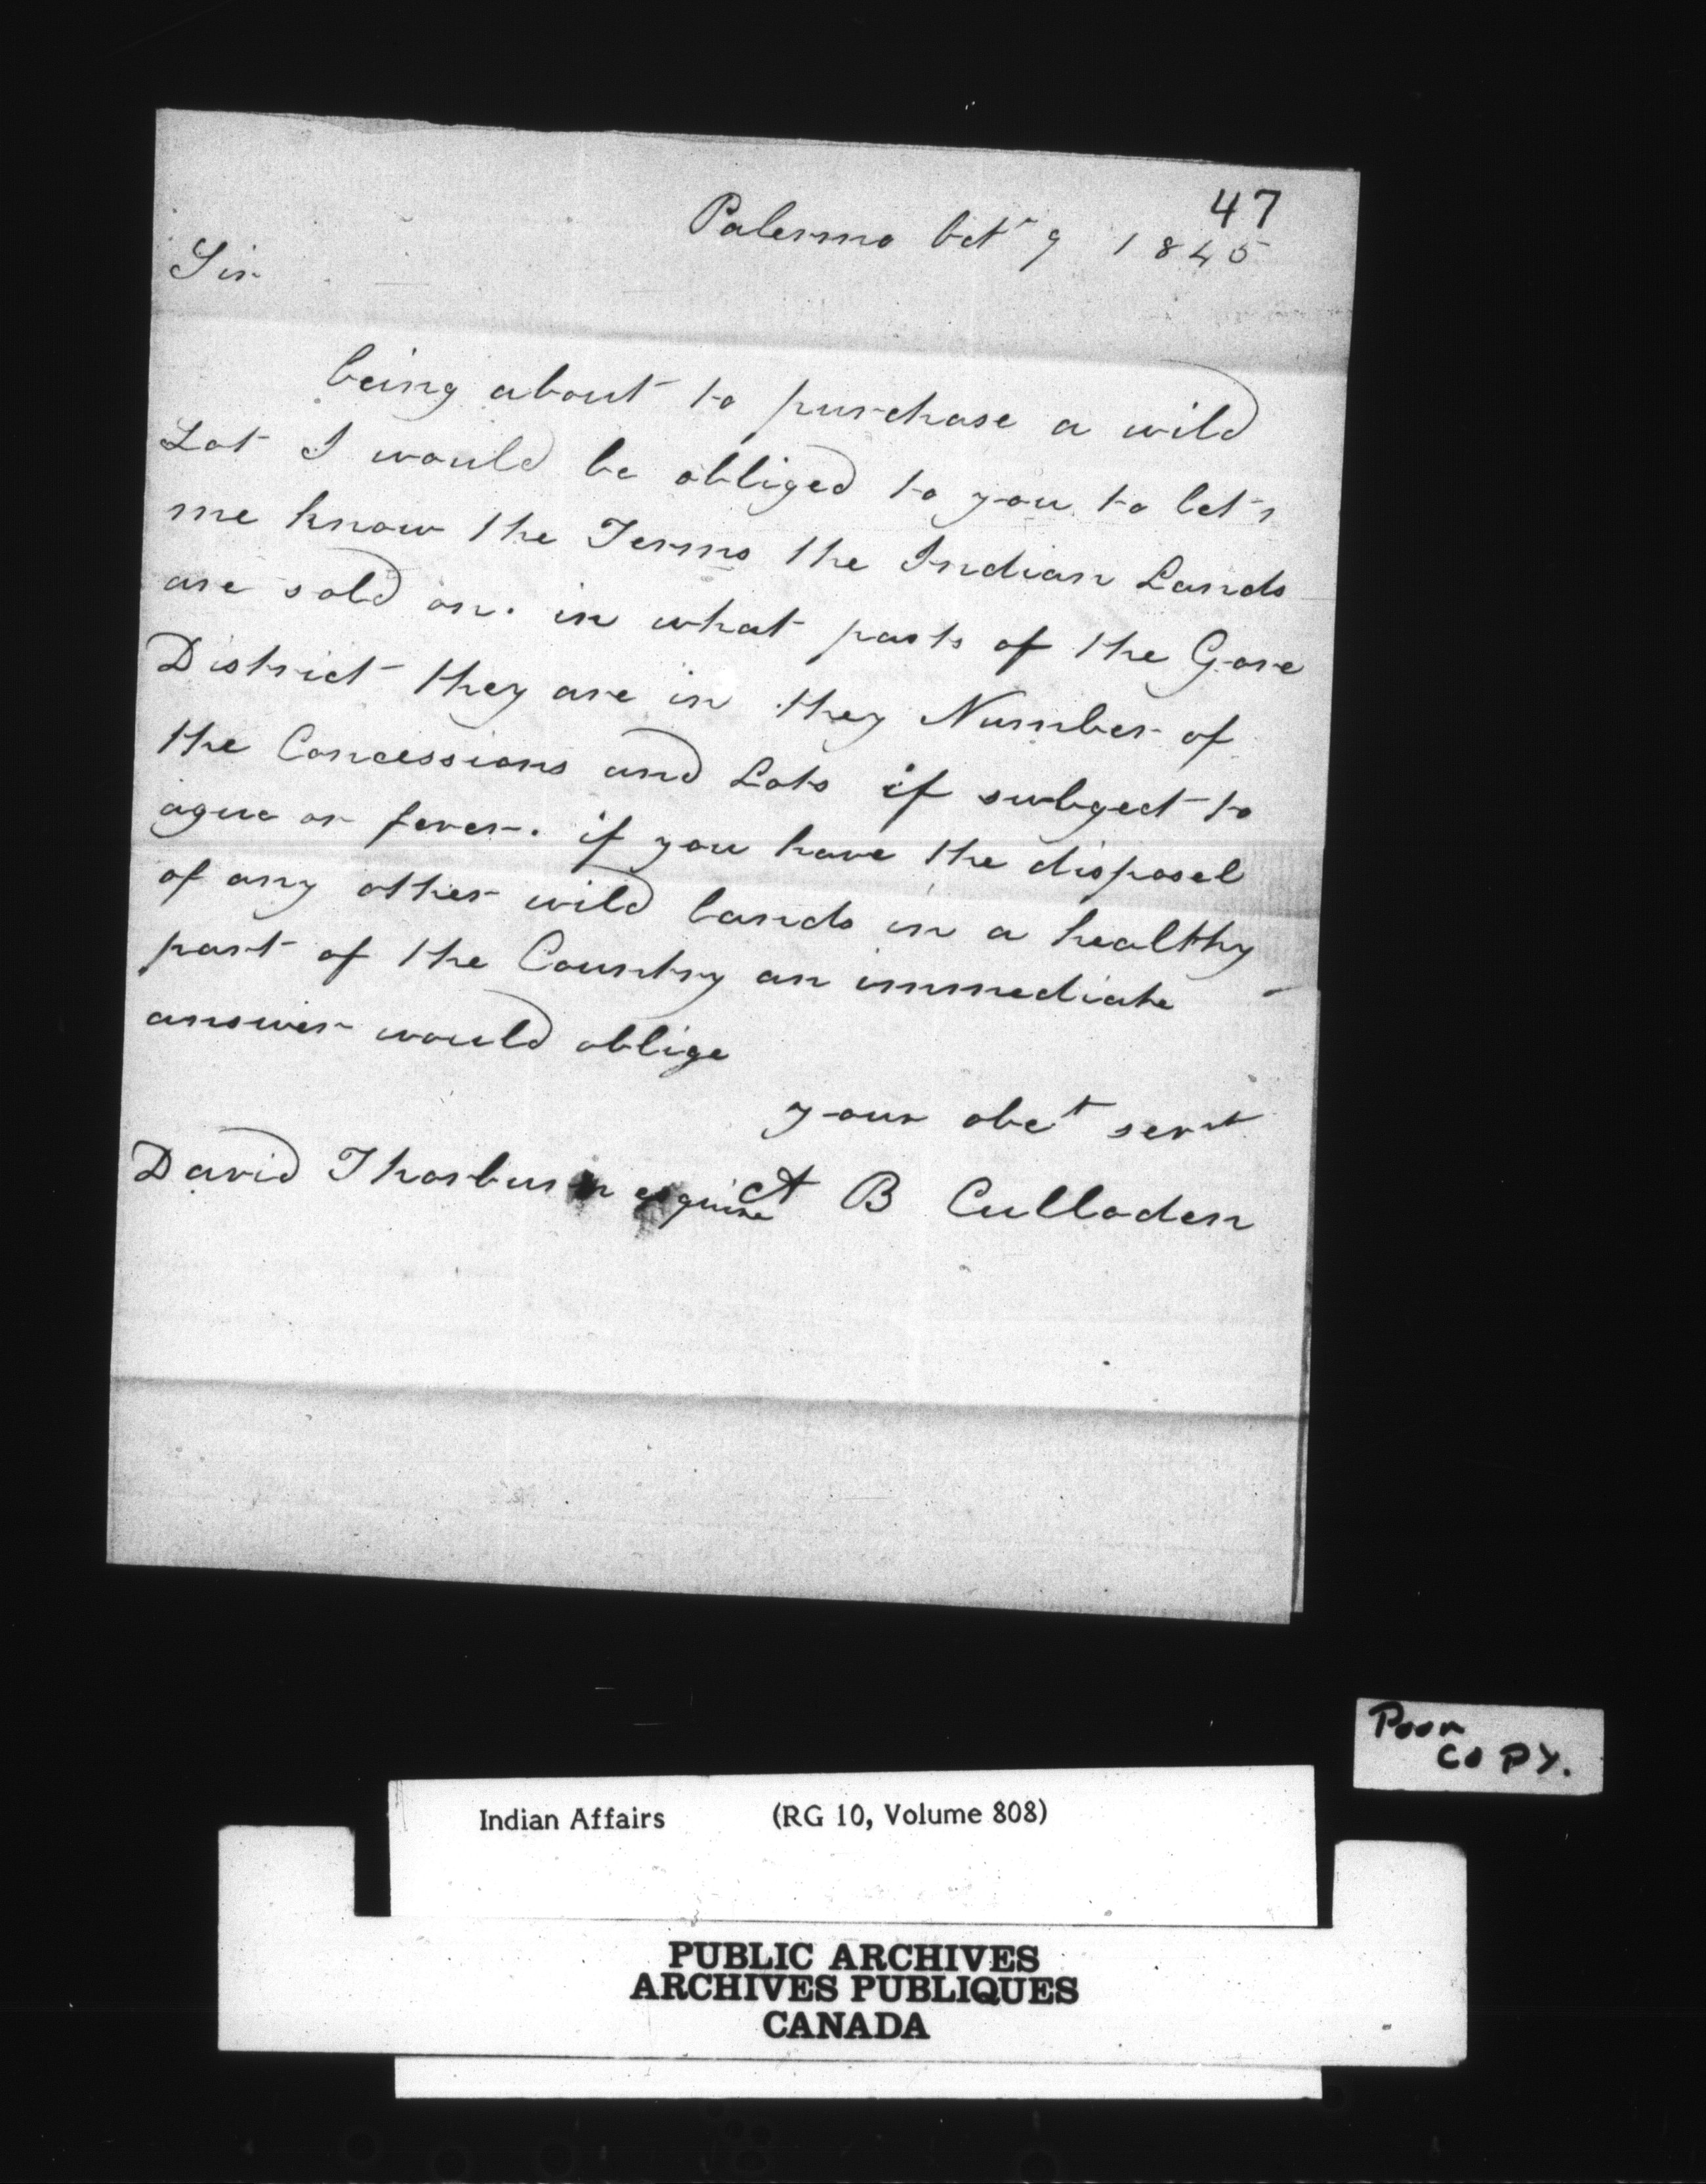 47
Palermo Oct 9 1845
Sir
being about to purchase a wild
Lot I would be obliged to you to let
me know the Terms the Indian Lands
are sold on. in what parts of the Gore
District they are in they Number of
the Concessions and Lots if subgect to
ague or fever. if you have the disposel
of any other wild lands in a healthy
part of the Country an immediate
answer would oblige
your obet servt
David Thorburn esquire A B Culloden
Poor
COPY.
Indian Affairs (RG 10, Volume 808)
PUBLIC ARCHIVES
ARCHIVES PUBLIQUES
CANADA